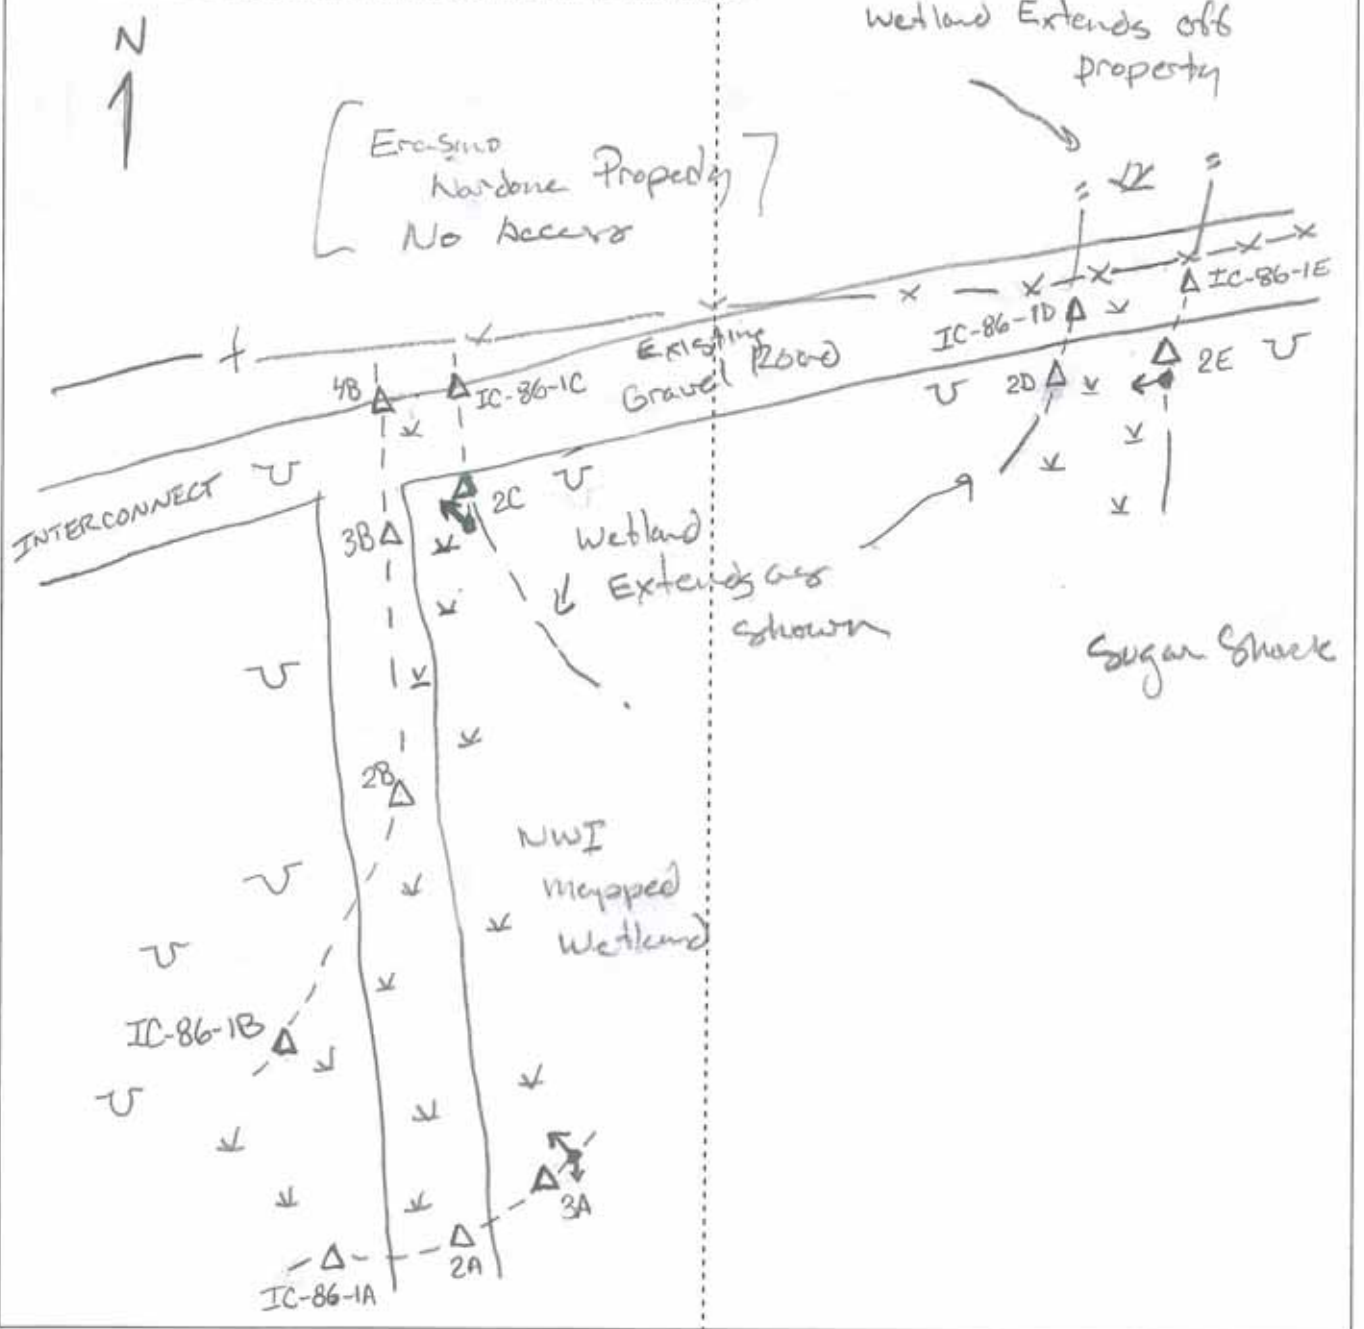 N
Wetland Extends off
property
Nardone Property
No Access
IC-86-1E
IC-86-1D
4B
IC-86-1C
Existing
Gravel Road
2D
2E
INTERCONNECT
2C
3B
Wetland
Extends as
shown
Sugar Shack
2B
NWI
mapped
Wetland
IC-86-1B
3A
2A
IC-86-1A